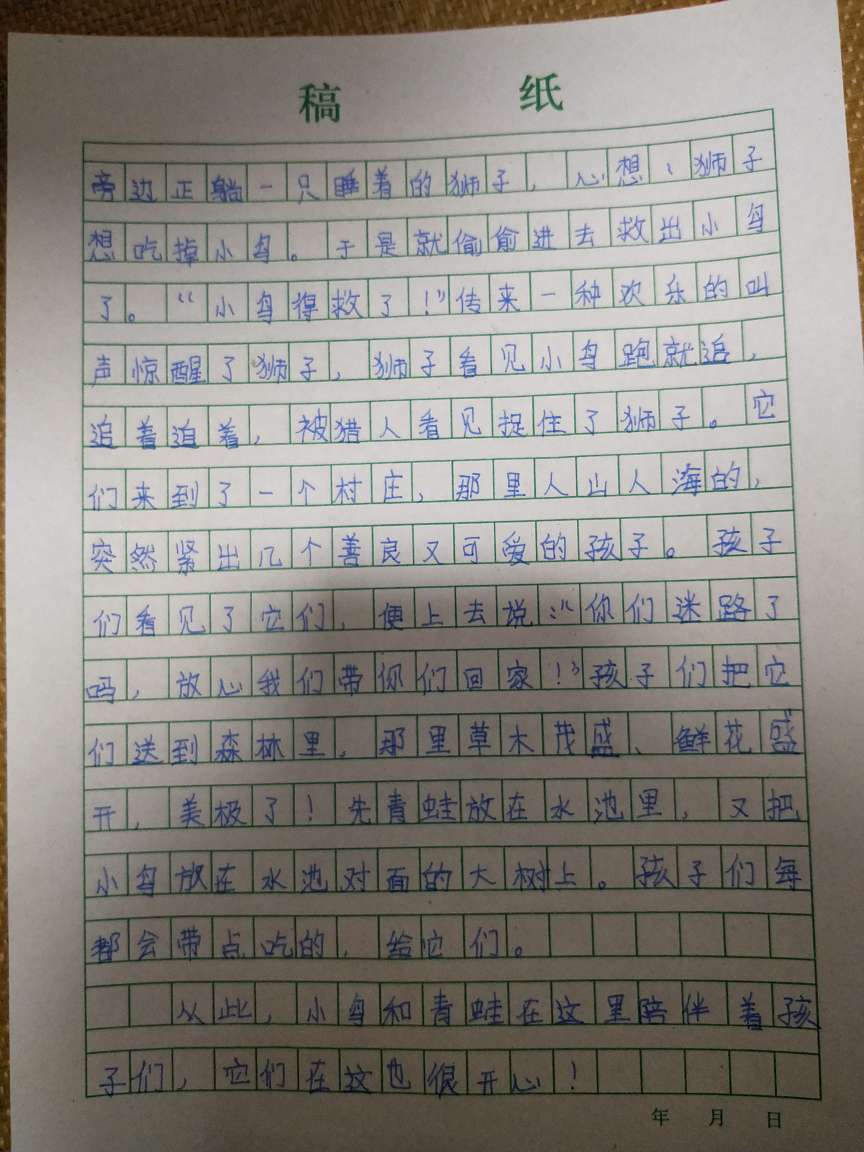 稿 纸
旁边正躺一只睡着的狮子，心想、狮子
想吃掉小鸟。于是就偷偷进去救出小鸟
了。“小鸟得救了！”传来一种欢乐的叫
声惊醒了狮子，狮子看见小鸟跑就追，
追着追着，被猎人看见捉住了狮子。它
们来到了一个村庄，那里人山人海的，
突然紧出几个善良又可爱的孩子。孩子
们看见了它们，便上去说：“你们迷路了
吗，放心我们带你们回家！”孩子们把它
们送到森林里，那里草木茂盛、鲜花盛
开，美极了！先青蛙放在水池里，又把
小鸟放在水池对面的大树上。孩子们每
都会带点吃的，给它们。
从此，小鸟和青蛙在这里陪伴着孩
子们，它们在这也很开心！
年 月 日